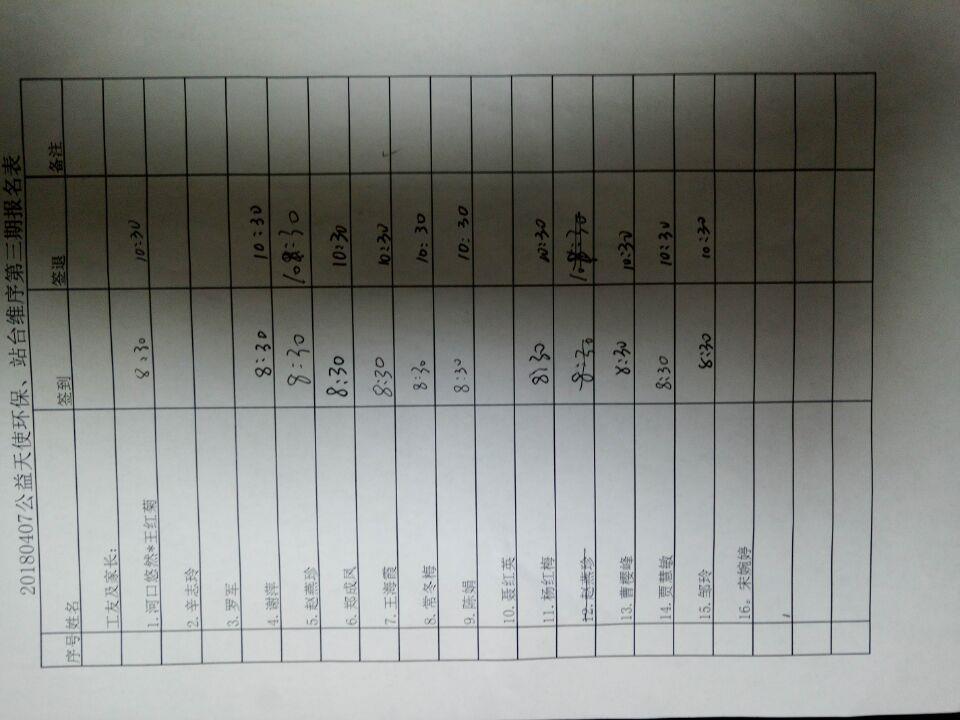 20180407公益天使环保、站台维序第三期报名表
序号 姓名 签到 签退 备注
工友及家长:
1. 河口悠然*王红菊 8:30 10:30
2. 辛志玲
3. 罗军
4. 谢萍 8:30 10:30
5. 赵燕珍 8:30 10:30
6. 郑成凤 8:30 10:30
7. 王海霞 8:30 10:30
8. 常冬梅 8:30 10:30
9. 陈娟 8:30 10:30
10. 聂红英
11. 杨红梅 8:30 10:30
12. 赵燕珍 8:30 10:30
13. 曹樱峰 8:30 10:30
14. 贾慧敏 8:30 10:30
15. 邹玲 8:30 10:30
16。宋婉婷